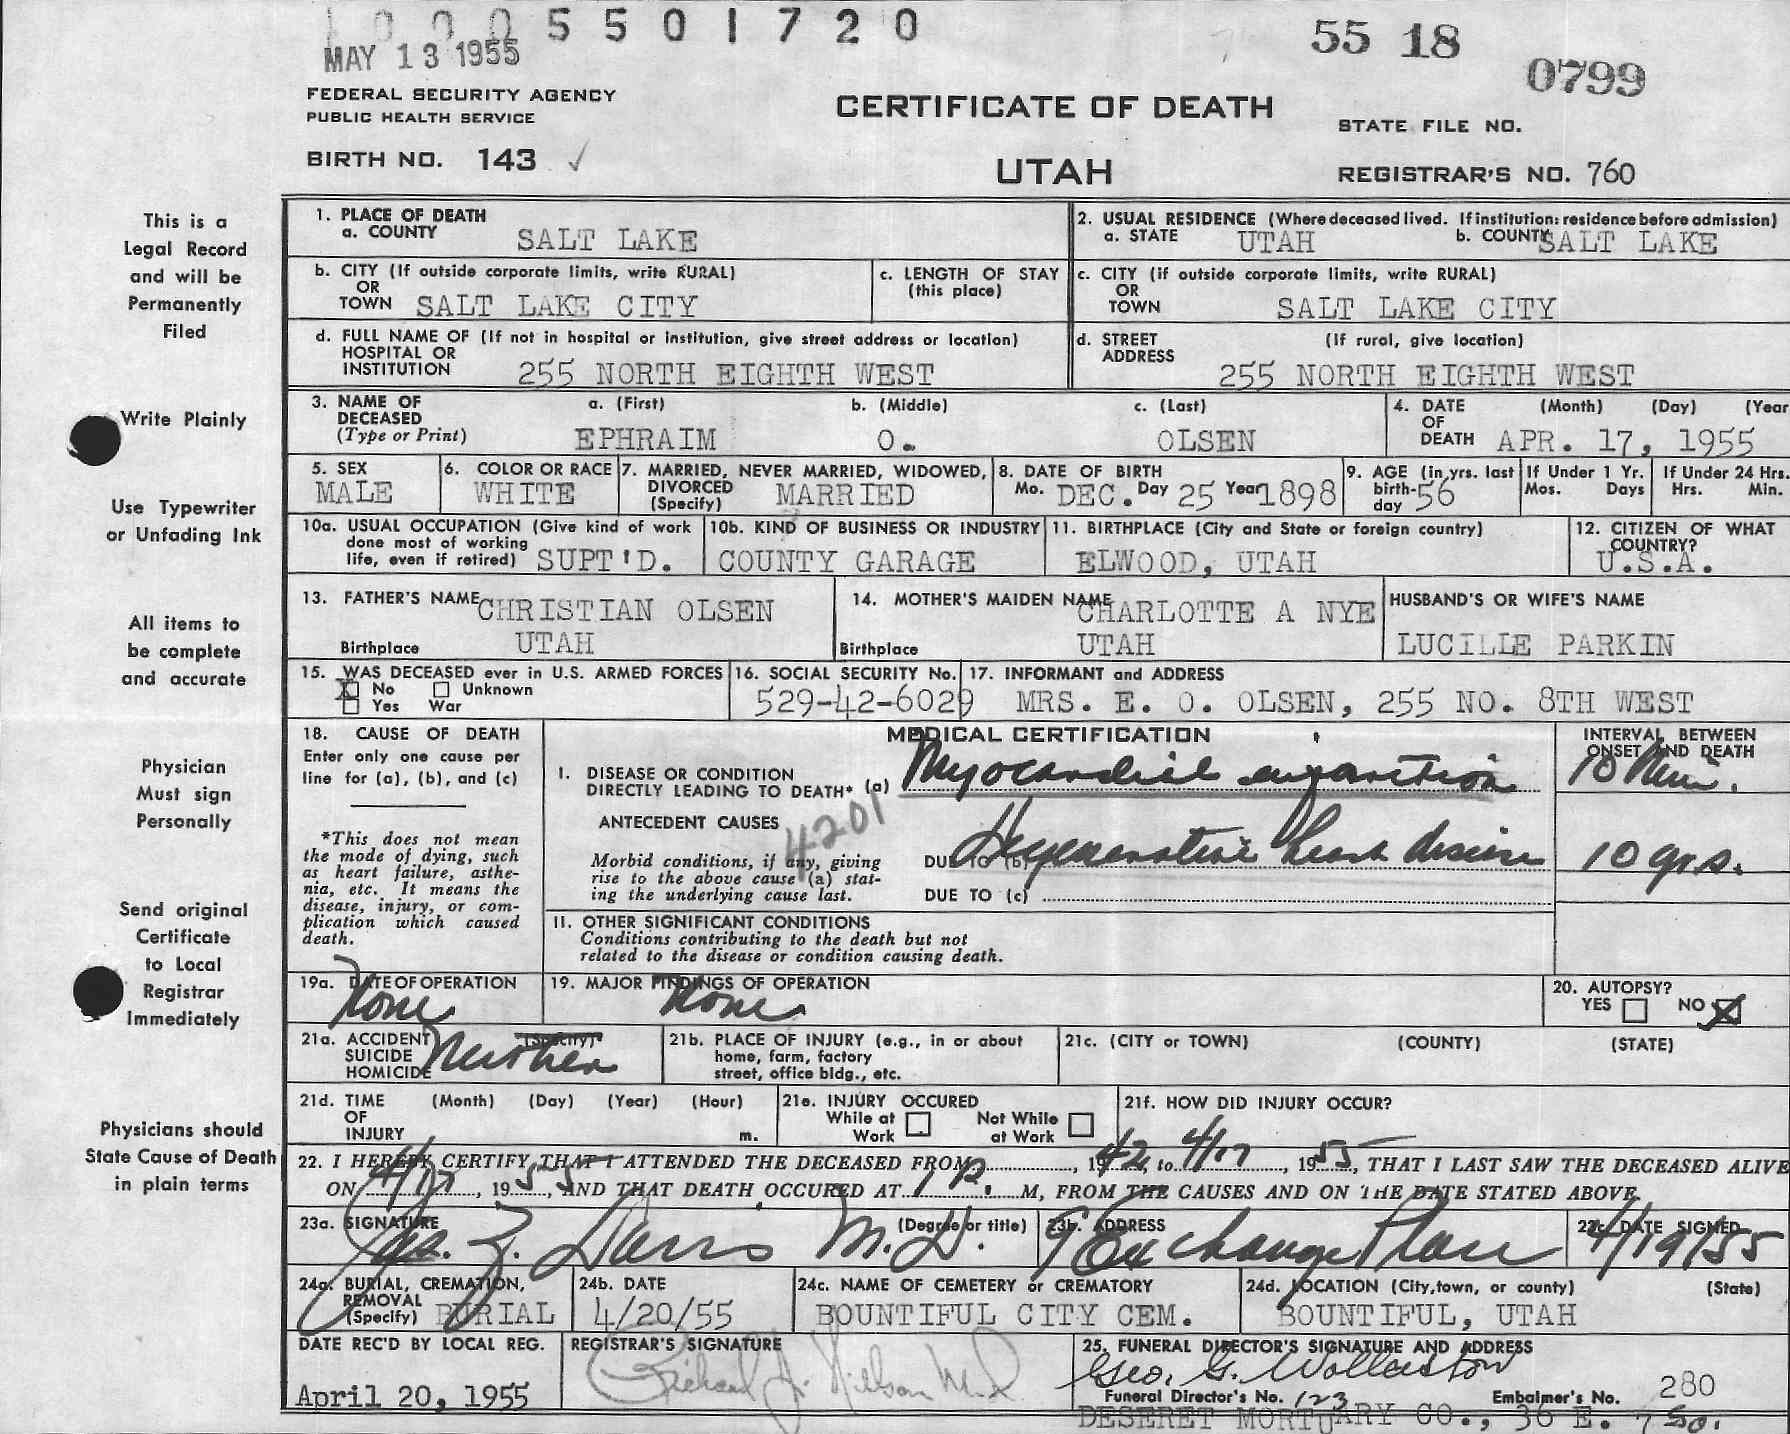 0005501720
MAY 13 1955
55 18
0799
FEDERAL SECURITY AGENCY
PUBLIC HEALTH SERVICE
CERTIFICATE OF DEATH
STATE FILE NO.
BIRTH NO. 143 ✓
UTAH
REGISTRAR'S NO. 760
This is a
Legal Record
and will be
Permanently
Filed
Write Plainly
Use Typewriter
or Unfading Ink
All items to
be complete
and accurate
Physician
Must sign
Personally
Send original
Certificate
to Local
Registrar
Immediately
Physicians should
State Cause of Death
in plain terms
1. PLACE OF DEATH
a. COUNTY SALT LAKE
2. USUAL RESIDENCE (Where deceased lived. If institution: residence before admission)
a. STATE UTAH b. COUNTY SALT LAKE
b. CITY (If outside corporate limits, write RURAL)
OR
TOWN SALT LAKE CITY
c. LENGTH OF STAY
(this place)
c. CITY (if outside corporate limits, write RURAL)
OR
TOWN SALT LAKE CITY
d. FULL NAME OF (If not in hospital or institution, give street address or location)
HOSPITAL OR
INSTITUTION 255 NORTH EIGHTH WEST
d. STREET (If rural, give location)
ADDRESS
255 NORTH EIGHTH WEST
3. NAME OF a. (First) b. (Middle) c. (Last)
DECEASED
(Type or Print) EPHRAIM O. OLSEN
4. DATE (Month) (Day) (Year
OF
DEATH APR. 17, 1955
5. SEX
MALE
6. COLOR OR RACE
WHITE
7. MARRIED, NEVER MARRIED, WIDOWED,
DIVORCED
(Specify) MARRIED
8. DATE OF BIRTH
Mo. DEC. Day 25 Year 1898
9. AGE (in yrs. last
birth-
day 56
If Under 1 Yr.
Mos. Days
If Under 24 Hrs.
Hrs. Min.
10a. USUAL OCCUPATION (Give kind of work
done most of working
life, even if retired) SUPT'D.
10b. KIND OF BUSINESS OR INDUSTRY
COUNTY GARAGE
11. BIRTHPLACE (City and State or foreign country)
ELWOOD, UTAH
12. CITIZEN OF WHAT
COUNTRY?
U.S.A.
13. FATHER'S NAME CHRISTIAN OLSEN
Birthplace UTAH
14. MOTHER'S MAIDEN NAME CHARLOTTE A NYE
Birthplace UTAH
HUSBAND'S OR WIFE'S NAME
LUCILLE PARKIN
15. WAS DECEASED ever in U.S. ARMED FORCES
X No Unknown
Yes War
16. SOCIAL SECURITY No.
529-42-6029
17. INFORMANT and ADDRESS
MRS. E. O. OLSEN, 255 NO. 8TH WEST
18. CAUSE OF DEATH
Enter only one cause per
line for (a), (b), and (c)
*This does not mean
the mode of dying, such
as heart failure, asthe-
nia, etc. It means the
disease, injury, or com-
plication which caused
death.
MEDICAL CERTIFICATION
INTERVAL BETWEEN
ONSET AND DEATH
I. DISEASE OR CONDITION
DIRECTLY LEADING TO DEATH* (a) Myocardial infarction 10 Min.
ANTECEDENT CAUSES
4201
Morbid conditions, if any, giving
rise to the above cause (a) stat-
ing the underlying cause last.
DUE TO (b) Degenerative heart disease 10 yrs.
DUE TO (c)
II. OTHER SIGNIFICANT CONDITIONS
Conditions contributing to the death but not
related to the disease or condition causing death.
19a. DATE OF OPERATION
None
19. MAJOR FINDINGS OF OPERATION
None
20. AUTOPSY?
YES NO X
21a. ACCIDENT (Specify)
SUICIDE
HOMICIDE Neither
21b. PLACE OF INJURY (e.g., in or about
home, farm, factory
street, office bldg., etc.
21c. (CITY or TOWN) (COUNTY) (STATE)
21d. TIME (Month) (Day) (Year) (Hour)
OF
INJURY m.
21e. INJURY OCCURED
While at Work Not While at Work
21f. HOW DID INJURY OCCUR?
22. I HEREBY CERTIFY THAT I ATTENDED THE DECEASED FROM , 1942, to 4/17, 1955, THAT I LAST SAW THE DECEASED ALIVE
ON 4/17, 1955, AND THAT DEATH OCCURED AT M, FROM THE CAUSES AND ON THE DATE STATED ABOVE.
23a. SIGNATURE (Degree or title)
Jas. Z. Davis M.D.
23b. ADDRESS
9 Exchange Place
23c. DATE SIGNED
4/19/55
24a. BURIAL, CREMATION,
REMOVAL
(Specify) BURIAL
24b. DATE
4/20/55
24c. NAME OF CEMETERY or CREMATORY
BOUNTIFUL CITY CEM.
24d. LOCATION (City, town, or county) (State)
BOUNTIFUL, UTAH
DATE REC'D BY LOCAL REG.
April 20, 1955
REGISTRAR'S SIGNATURE
Richard J. Nelson M.D.
25. FUNERAL DIRECTOR'S SIGNATURE AND ADDRESS
Geo. G. Wollaston
Funeral Director's No. 123 Embalmer's No. 280
DESERET MORTUARY CO., 36 E. 7 So.